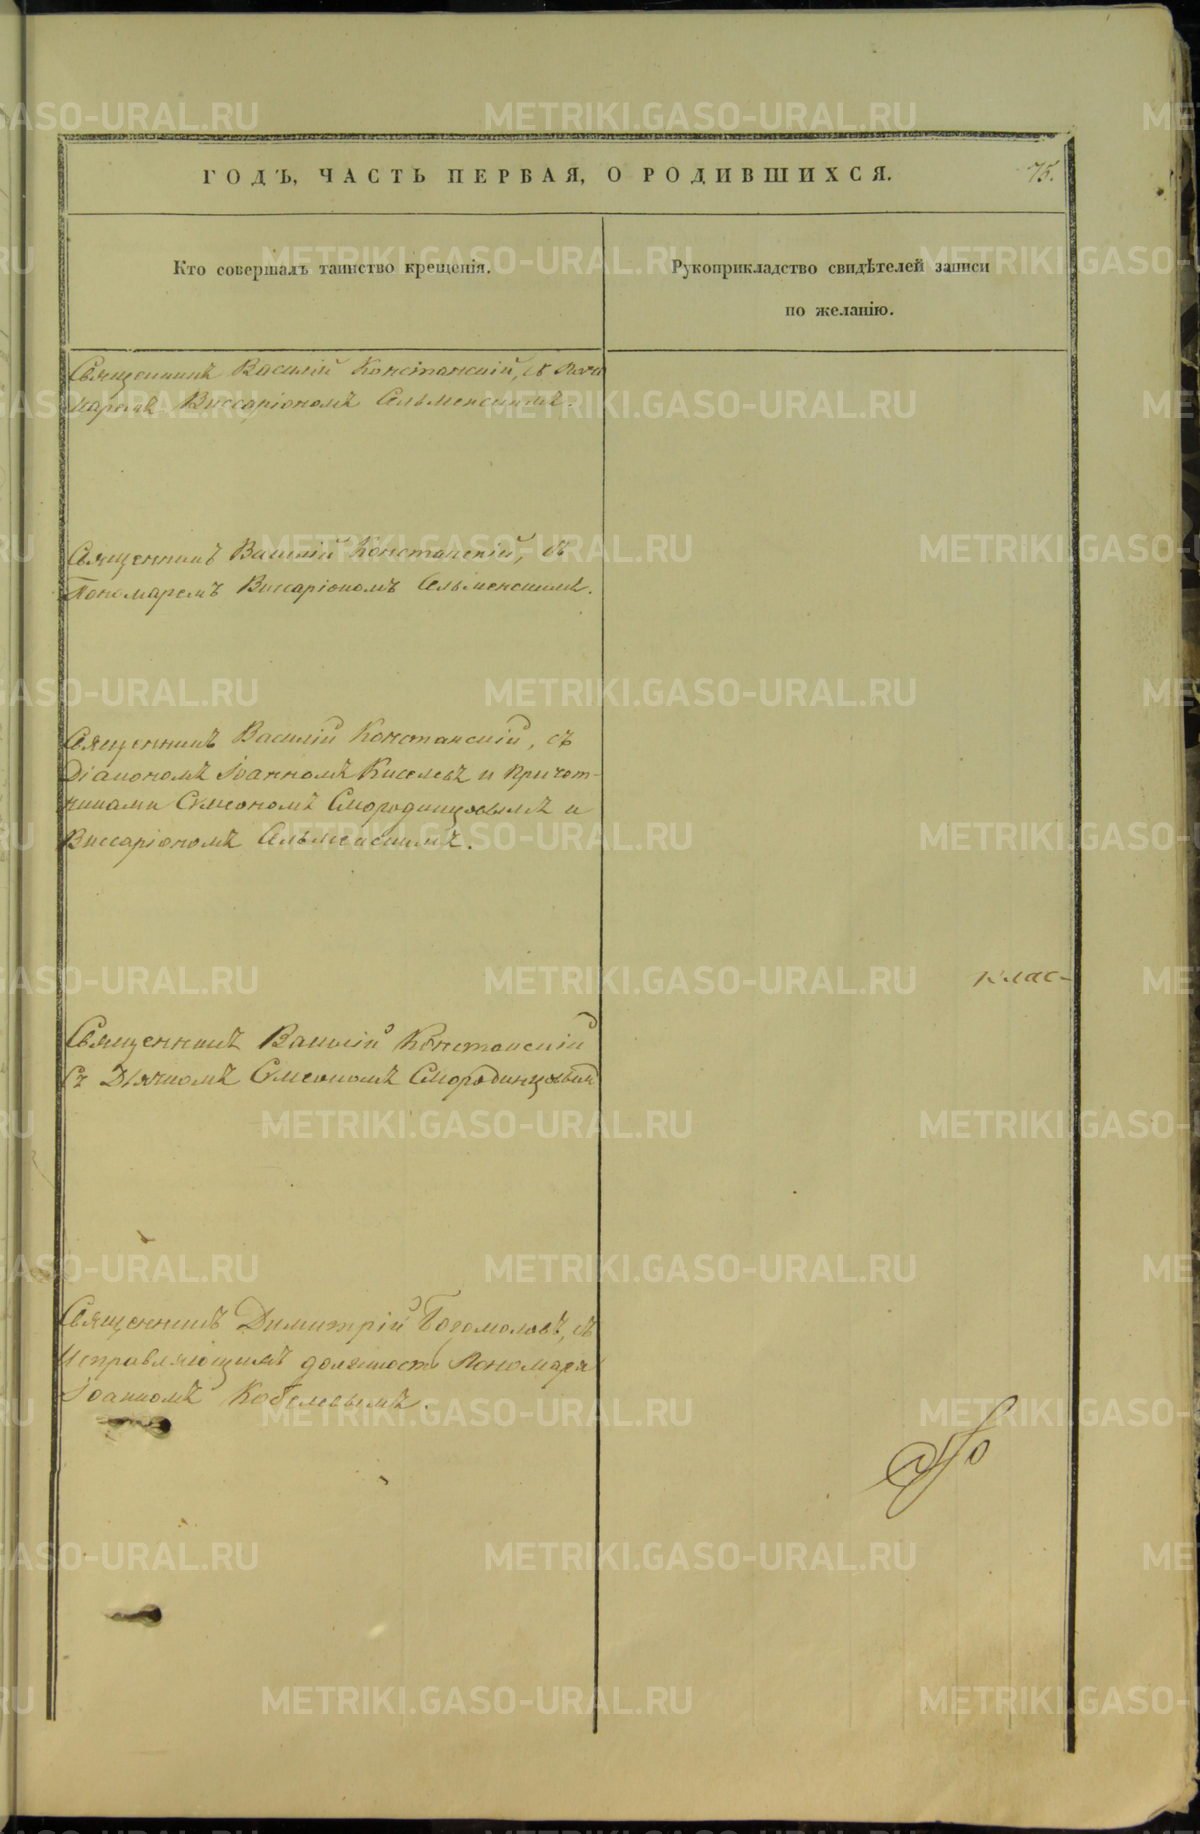 ГОДЪ, ЧАСТЬ ПЕРВАЯ, О РОДИВШИХСЯ.
75.
Кто совершалъ таинство крещенія.
Рукоприкладство свидѣтелей записи
по желанію.
Священникъ Василій Констанскій, съ Поно
маремъ Виссаріономъ Сельменскимъ.
Священникъ Василій Констанскій, съ
Пономаремъ Виссаріономъ Сельменскимъ.
Священникъ Василій Констанскій, съ
Діакономъ Іоанномъ Киселевъ и Причет-
никами Симеономъ Смородинцовымъ и
Виссаріономъ Сельменскимъ.
клас-
Священникъ Василій Констанскій
Съ Дьячкомъ Симеономъ Смородинцовымъ
Священникъ Димитрій Богомоловъ, съ
Исправляющимъ должность Пономаря
Іоанномъ Кобелевымъ.
METRIKI.GASO-URAL.RU